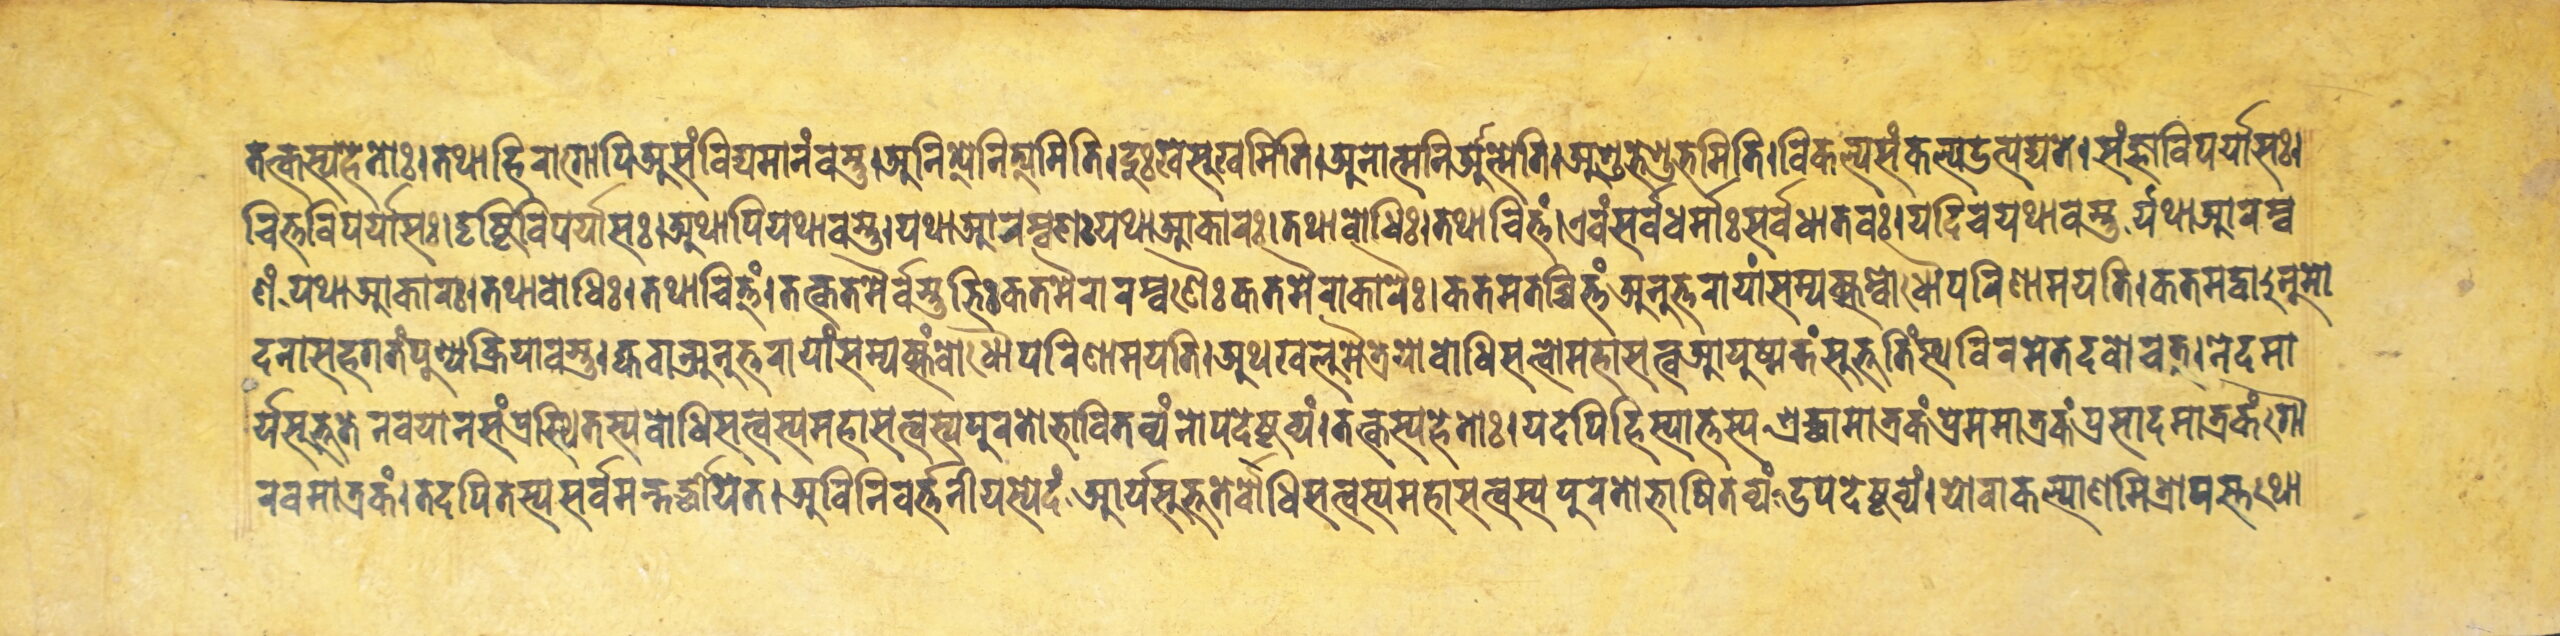 तत्कस्य हेतोः। तथा हि रागोपि असंविद्यमानं वस्तु। अनित्ये नित्यमिति। दुःखे सुखमिति। अनात्मनि आत्मेति। अशुभे शुभमिति। विकल्प्य संकल्प्य उत्पद्यते। संज्ञाविपर्यासः।
चित्तविपर्यासः। दृष्टिविपर्यासः। अथापि यथा वस्तु। यथा आरम्बणः यथा आकारः। तथा बोधिः। तथा चित्तं। एवं सर्वधर्माः सर्वधातवः। यदि च यथा वस्तु र्यथा आरम्ब
णं यथा आकारः। तथा बोधिः। तथा चित्तं। तत्कतमैर्वस्तुभिः कतमैरारम्बणैः कतमैराकारैः। कतमतच्चित्तं अनुत्तरायां सम्यक्सम्बोधौ परिणामयति। कतमद्वा ऽनुमो
दनासहगतं पुण्यक्रियावस्तु। क्व वा अनुत्तरायां सम्यक्संबोधौ परिणामयति। अथ खलु मैत्रेयो बोधिसत्त्वो महासत्त्व आयुष्मन्तं सुभूतिं स्थविरमेतदवोचत्। नेदमा
र्य सुभूते नवयानसंप्रस्थितस्य बोधिसत्त्वस्य महासत्त्वस्य पुरतो भावितव्यं नोपदेष्टव्यं। तत्कस्य हेतोः। यदपि हि स्यात्तस्य श्रद्धामात्रकं प्रेममात्रकं प्रसादमात्रकं गौ
रवमात्रकं। तदपि तस्य सर्वमन्तर्द्धीयेत। अविनिवर्त्तनीयस्येदं आर्यसुभूते र्बोधिसत्त्वस्य महासत्त्वस्य पुरतो भाषितव्यं उपदेष्टव्यं। यो वा कल्याणमित्रोपस्तथा